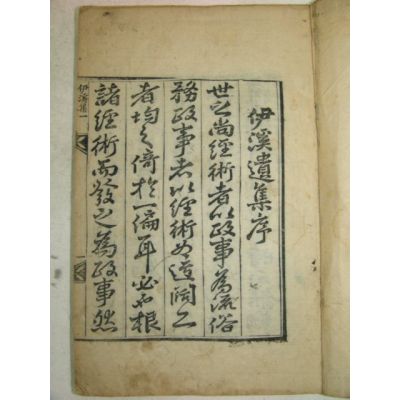 伊溪遺集序
世之尚經術者以政事為流俗
務政事者以經術為迂闊二
者均之倚於一偏耳必也根
諸經術而發之為政事然
伊溪集一
一